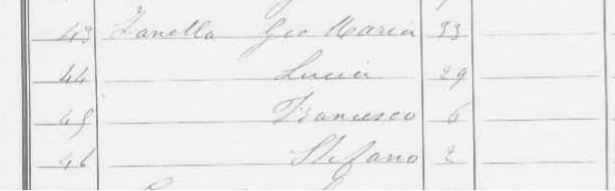 43 Zanella Gio Maria 33
44 Lucia 29
45 Francesco 6
46 Stefano 2